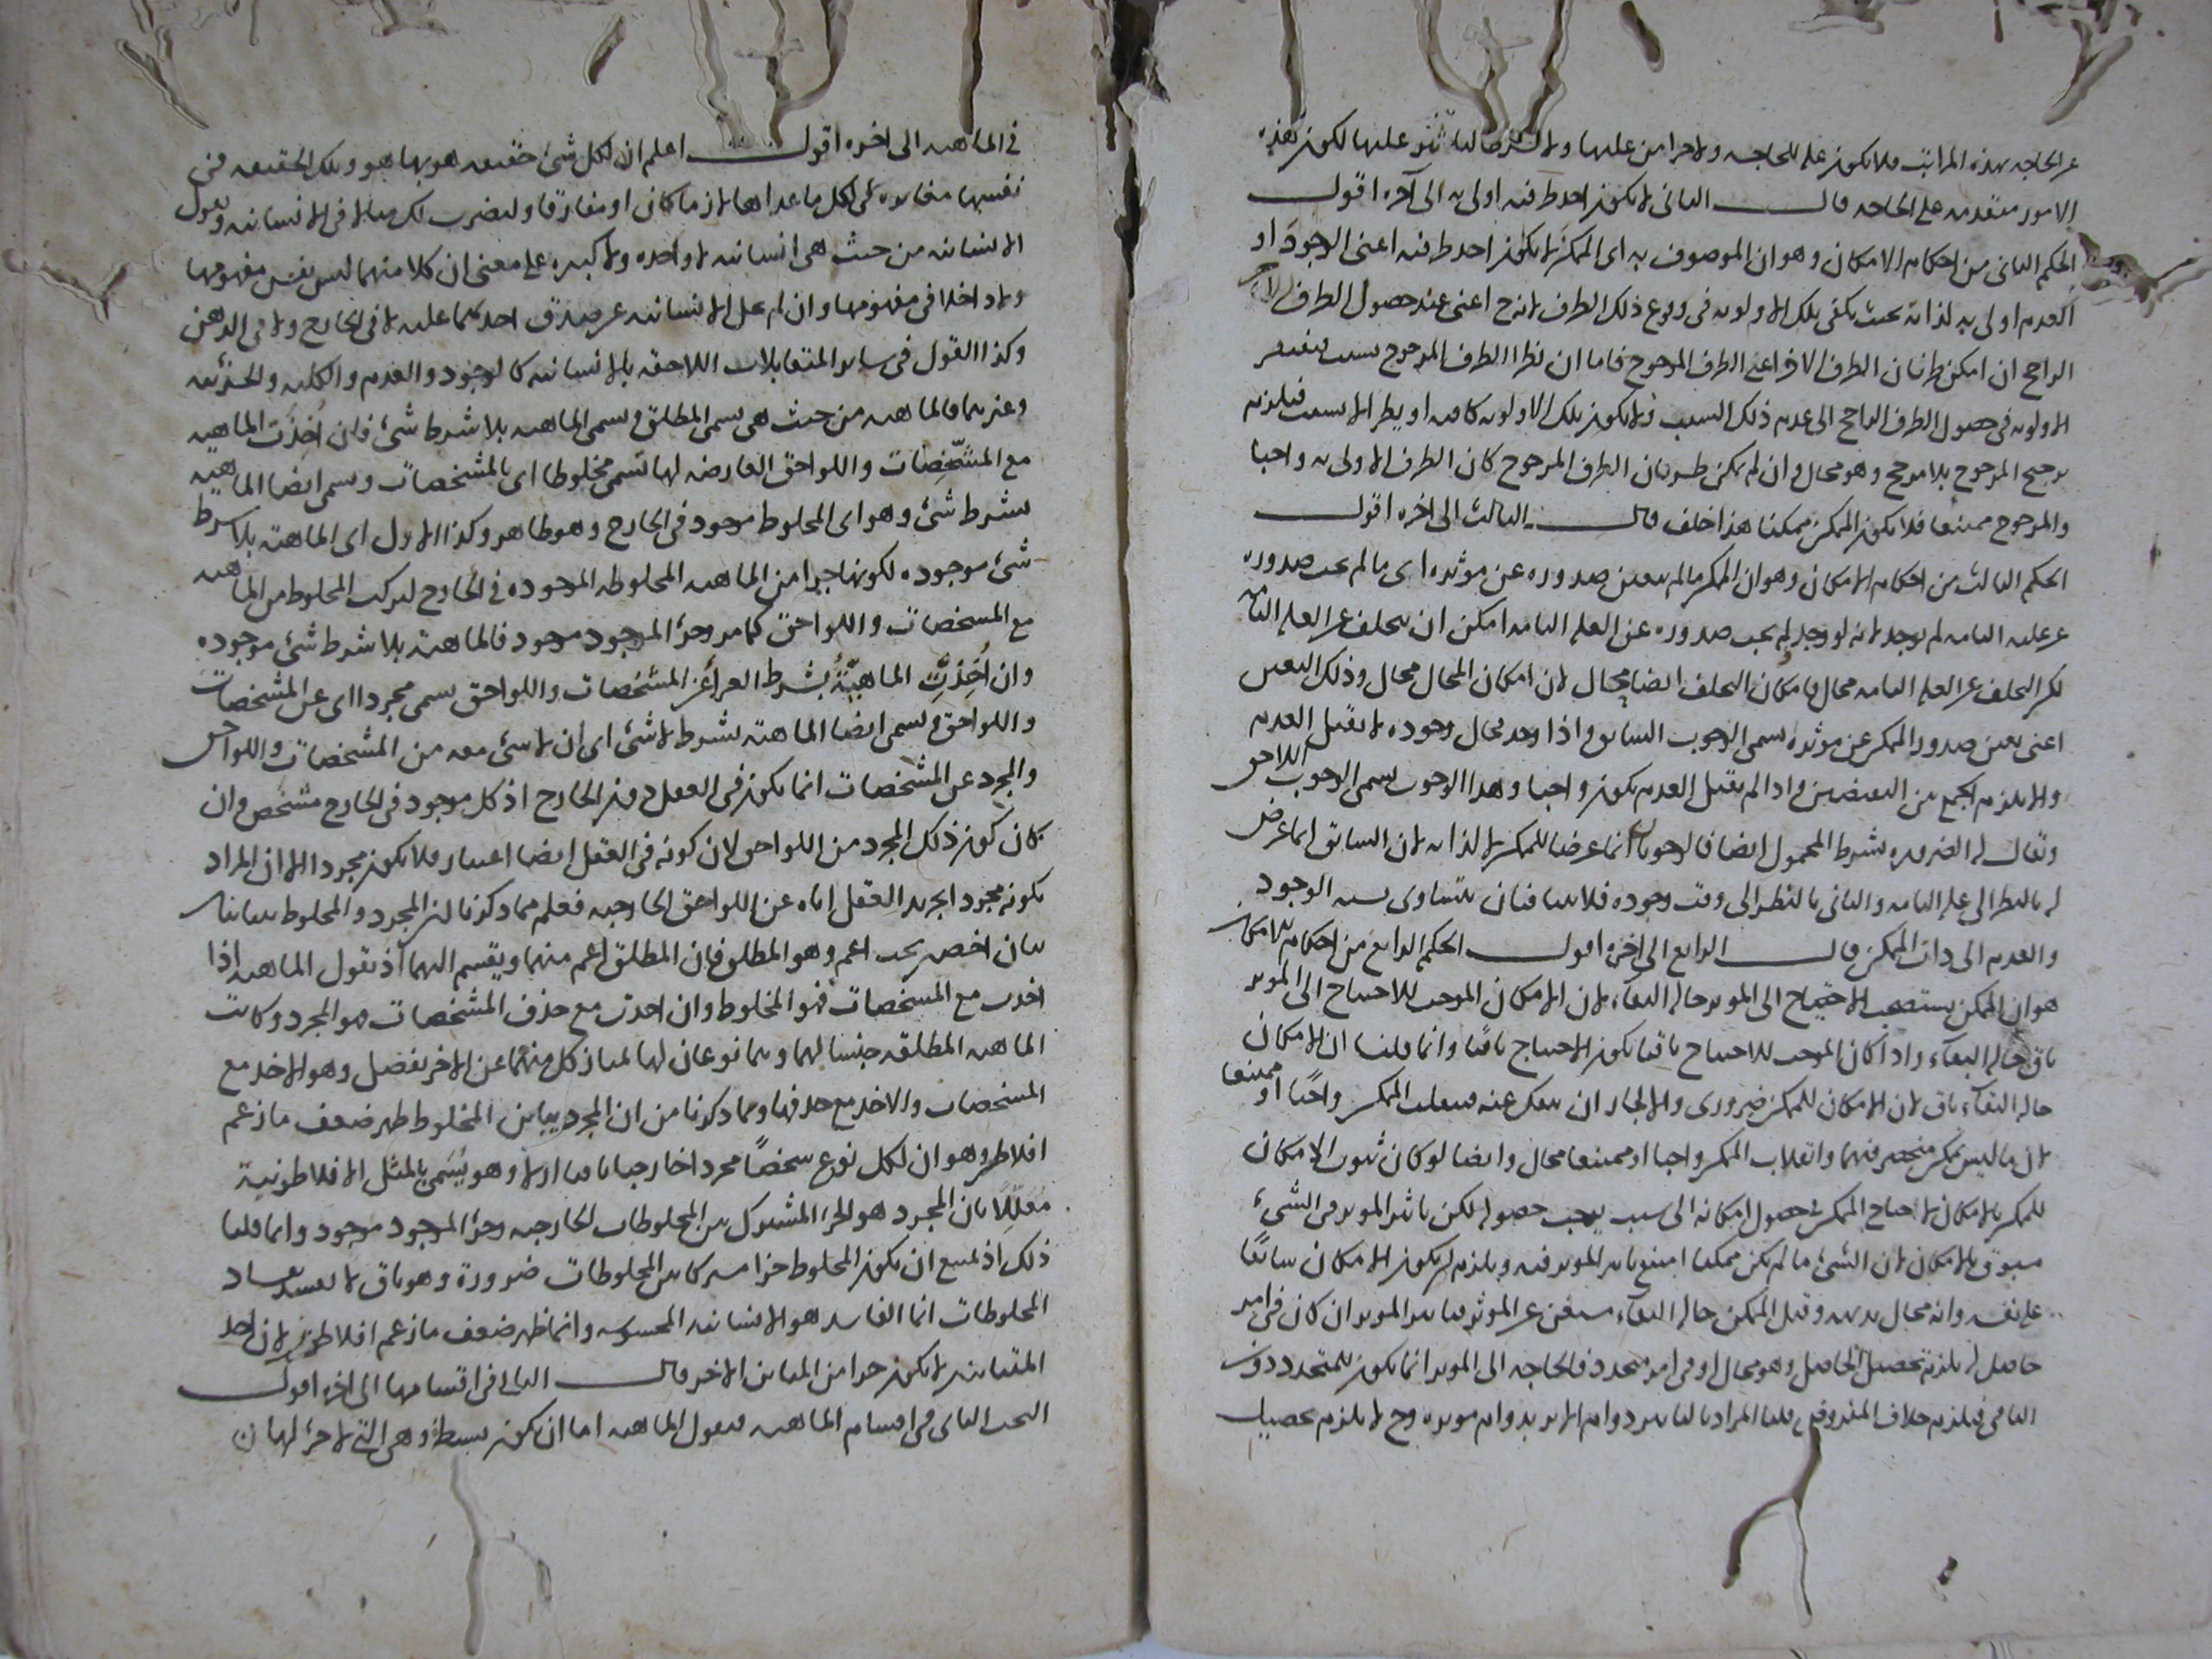 عن الحاجه بهذه المراتب فلا يكون عله للحاجه ولا جزا من علتها ولا شرطا لها لكون هذه
الامور متقدمه على الحاجه قال الثانى لا يكون احد طرفيه اولى به الى آخره اقول
الحكم الثانى من احكام الامكان وهو ان الموصوف به اى الممكن لا يكون احد طرفيه اعنى الوجود او
العدم اولى به لذاته بحيث يكفى تلك الاولويه فى وقوع ذلك الطرف اعنى عند حصول الطرف
الراجح ان امكن طريان الطرف الاخر اعنى الطرف المرجوح فاما ان يطرا الطرف المرجوح بسبب فيفتقر
الاولويه فى حصول الطرف الراجح الى عدم ذلك السبب ولا يكون تلك الاولويه كافيه او يطرا لا بسبب فيلزم
ترجيح المرجوح بلا مرجح وهو محال وان لم يمكن طريان الطرف المرجوح كان الطرف الاولى به واجبا
والمرجوح ممتنعا فلا يكون الممكن ممكنا هذا خلف قال الثالث الى اخره اقول
الحكم الثالث من احكام الامكان وهو ان الممكن ما لم يتعين صدوره عن موثره اى ما لم يجب صدوره
عن علته التامه لم يوجد لانه لو وجد ولم يجب صدوره عن العله التامه امكن ان يتخلف عن العله التامه
لكن التخلف عن العله التامه محال فامكان التخلف ايضا محال لان امكان المحال محال وذلك التعين
اعنى تعين صدور الممكن عن موثره يسمى الوجوب السابق واذا وجد فحال وجوده لا يقبل العدم
والا يلزم الجمع بين النقيضين واذا لم يقبل العدم يكون واجبا وهذا الوجوب يسمى الوجوب اللاحق
ويقال له الضروره بشرط المحمول ايضا فالوجوبان انما عرضا للممكن لا لذاته لان السابق انما عرض
له بالنظر الى علته التامه والثانى بالنظر الى وقت وجوده فلا ينافيان تساوى نسبه الوجود
والعدم الى ذات الممكن قال الرابع الى اخره اقول الحكم الرابع من احكام الامكان
هو ان الممكن يستصحب الاحتياج الى الموثر حاله البقاء لان الامكان الموجب للاحتياج الى الموثر
باق حاله البقاء واذا كان الموجب للاحتياج باقيا يكون الاحتياج باقيا وانما قلنا ان الامكان
حاله البقاء باق لان الامكان للممكن ضرورى والا لجاز ان ينفك عنه فينقلب الممكن واجبا او ممتنعا
لان ما ليس بممكن منحصر فيهما وانقلاب الممكن واجبا او ممتنعا محال وايضا لو كان ثبوت الامكان
للممكن بالامكان لاحتاج الممكن فى حصول امكانه الى سبب يوجب حصوله لكن تاثير الموثر فى الشىء
مسبوق بالامكان لان الشئ ما لم يكن ممكنا امتنع تاثير الموثر فيه ويلزم ان يكون الامكان سابقا
على نفسه وانه محال بديهه وقيل الممكن حاله البقاء مستغن عن الموثر فتاثير الموثر ان كان فى امر
حاصل له يلزم تحصيل الحاصل وهو محال او فى امر متجدد فالحاجه الى الموثر انما يكون للمتجدد دون
الباقى فيلزم خلاف المفروض قلنا المراد بالتاثير دوام الاثر بدوام موثره وح لا يلزم تحصيل
فى الماهيه الى اخره اقول اعلم ان لكل شئ حقيقه هو بها هو وتلك الحقيقه فى
نفسها مغايره لكل ما عداها لازما كان او مفارقا ولنضرب لك مثالا فى الانسانيه ونقول
الانسانيه من حيث هى انسانيه لا واحده ولا كثيره على معنى ان كلا منهما ليس نفس مفهومها
ولا داخلا فى مفهومها وان لم يخل الانسانيه عن صدق احدهما عليه لا فى الخارج ولا فى الذهن
وكذا القول فى ساير المتقابلات اللاحقه بالانسانيه كالوجود والعدم والكليه والجزئيه
وغيرها فالماهيه من حيث هى يسمى المطلق ويسمى الماهيه بلا شرط شئ فان اُخِذَت الماهيه
مع المشخِّصات واللواحق العارضه لها تسمى مخلوطا اى بالمشخصات ويسمى ايضا الماهيه
بشرط شئ وهو اى المخلوط موجود فى الخارج وهو ظاهر وكذا الاول اى الماهيه بلا شرط
شئ موجوده لكونها جزا من الماهيه المخلوطه الموجوده فى الخارج لتركب المخلوط من الماهيه
مع المشخصات واللواحق كما مر وجزء الموجود موجود فالماهيه بلا شرط شئ موجوده
وان اُخِذَتِ الماهيّةُ بشرط العراء عن المشخصات واللواحق يسمى مجردا اى عن المشخصات
واللواحق ويسمى ايضا الماهيه بشرط لا شئ اى ان لا شئ معه من المشخصات واللواحق
والمجرد عن المشخصات انما يكون فى العقل دون الخارج اذ كل موجود فى الخارج مشخص وان
كان كون ذلك المجرد من اللواحق لان كونه فى العقل ايضا اعتبار فلا يكون مجردا الا ان المراد
بكونه مجردا تجريد العقل اياه عن اللواحق الخارجيه فعلم مما ذكرنا ان المجرد والمخلوط يتباينان
تباين اخصين تحت اعم وهو المطلق فان المطلق اعم منهما وينقسم اليهما اذ نقول الماهيه اذا
اخذت مع المشخصات فهو المخلوط وان اخذت مع حذف المشخصات هو المجرد وكانت
الماهيه المطلقه جنسا لهما وهما نوعان لها يمتاز كل منهما عن الاخر بفصل وهو الاخذ مع
المشخصات والاخذ مع حذفها وبما ذكرنا من ان المجرد يباين المخلوط ظهر ضعف ما زعم
افلاطن وهو ان لكل نوع شخصًا مجردا خارجيا باقيا ازلا وهو يُسَمى بالمثل الافلاطونية
مُعلِّلًا بان المجرد هو الجزء المشترك بين المخلوطات الخارجيه وجزء الموجود موجود وانما قلنا
ذلك اذ يمتنع ان يكون المخلوط جزا مشتركا بين المخلوطات ضرورة وهو باق لا يفسد بفساد
المخلوطات انما الفاسد هو الانسانيه المحسوسه وانما ظهر ضعف ما زعم افلاطن لان احد
المتباينين لا يكون جزا من المباين الاخر قال الثانى فى اقسامها الى اخره اقول
البحث الثانى فى اقسام الماهيه فنقول الماهيه اما ان يكون بسيطة وهى التى لا جزء لها